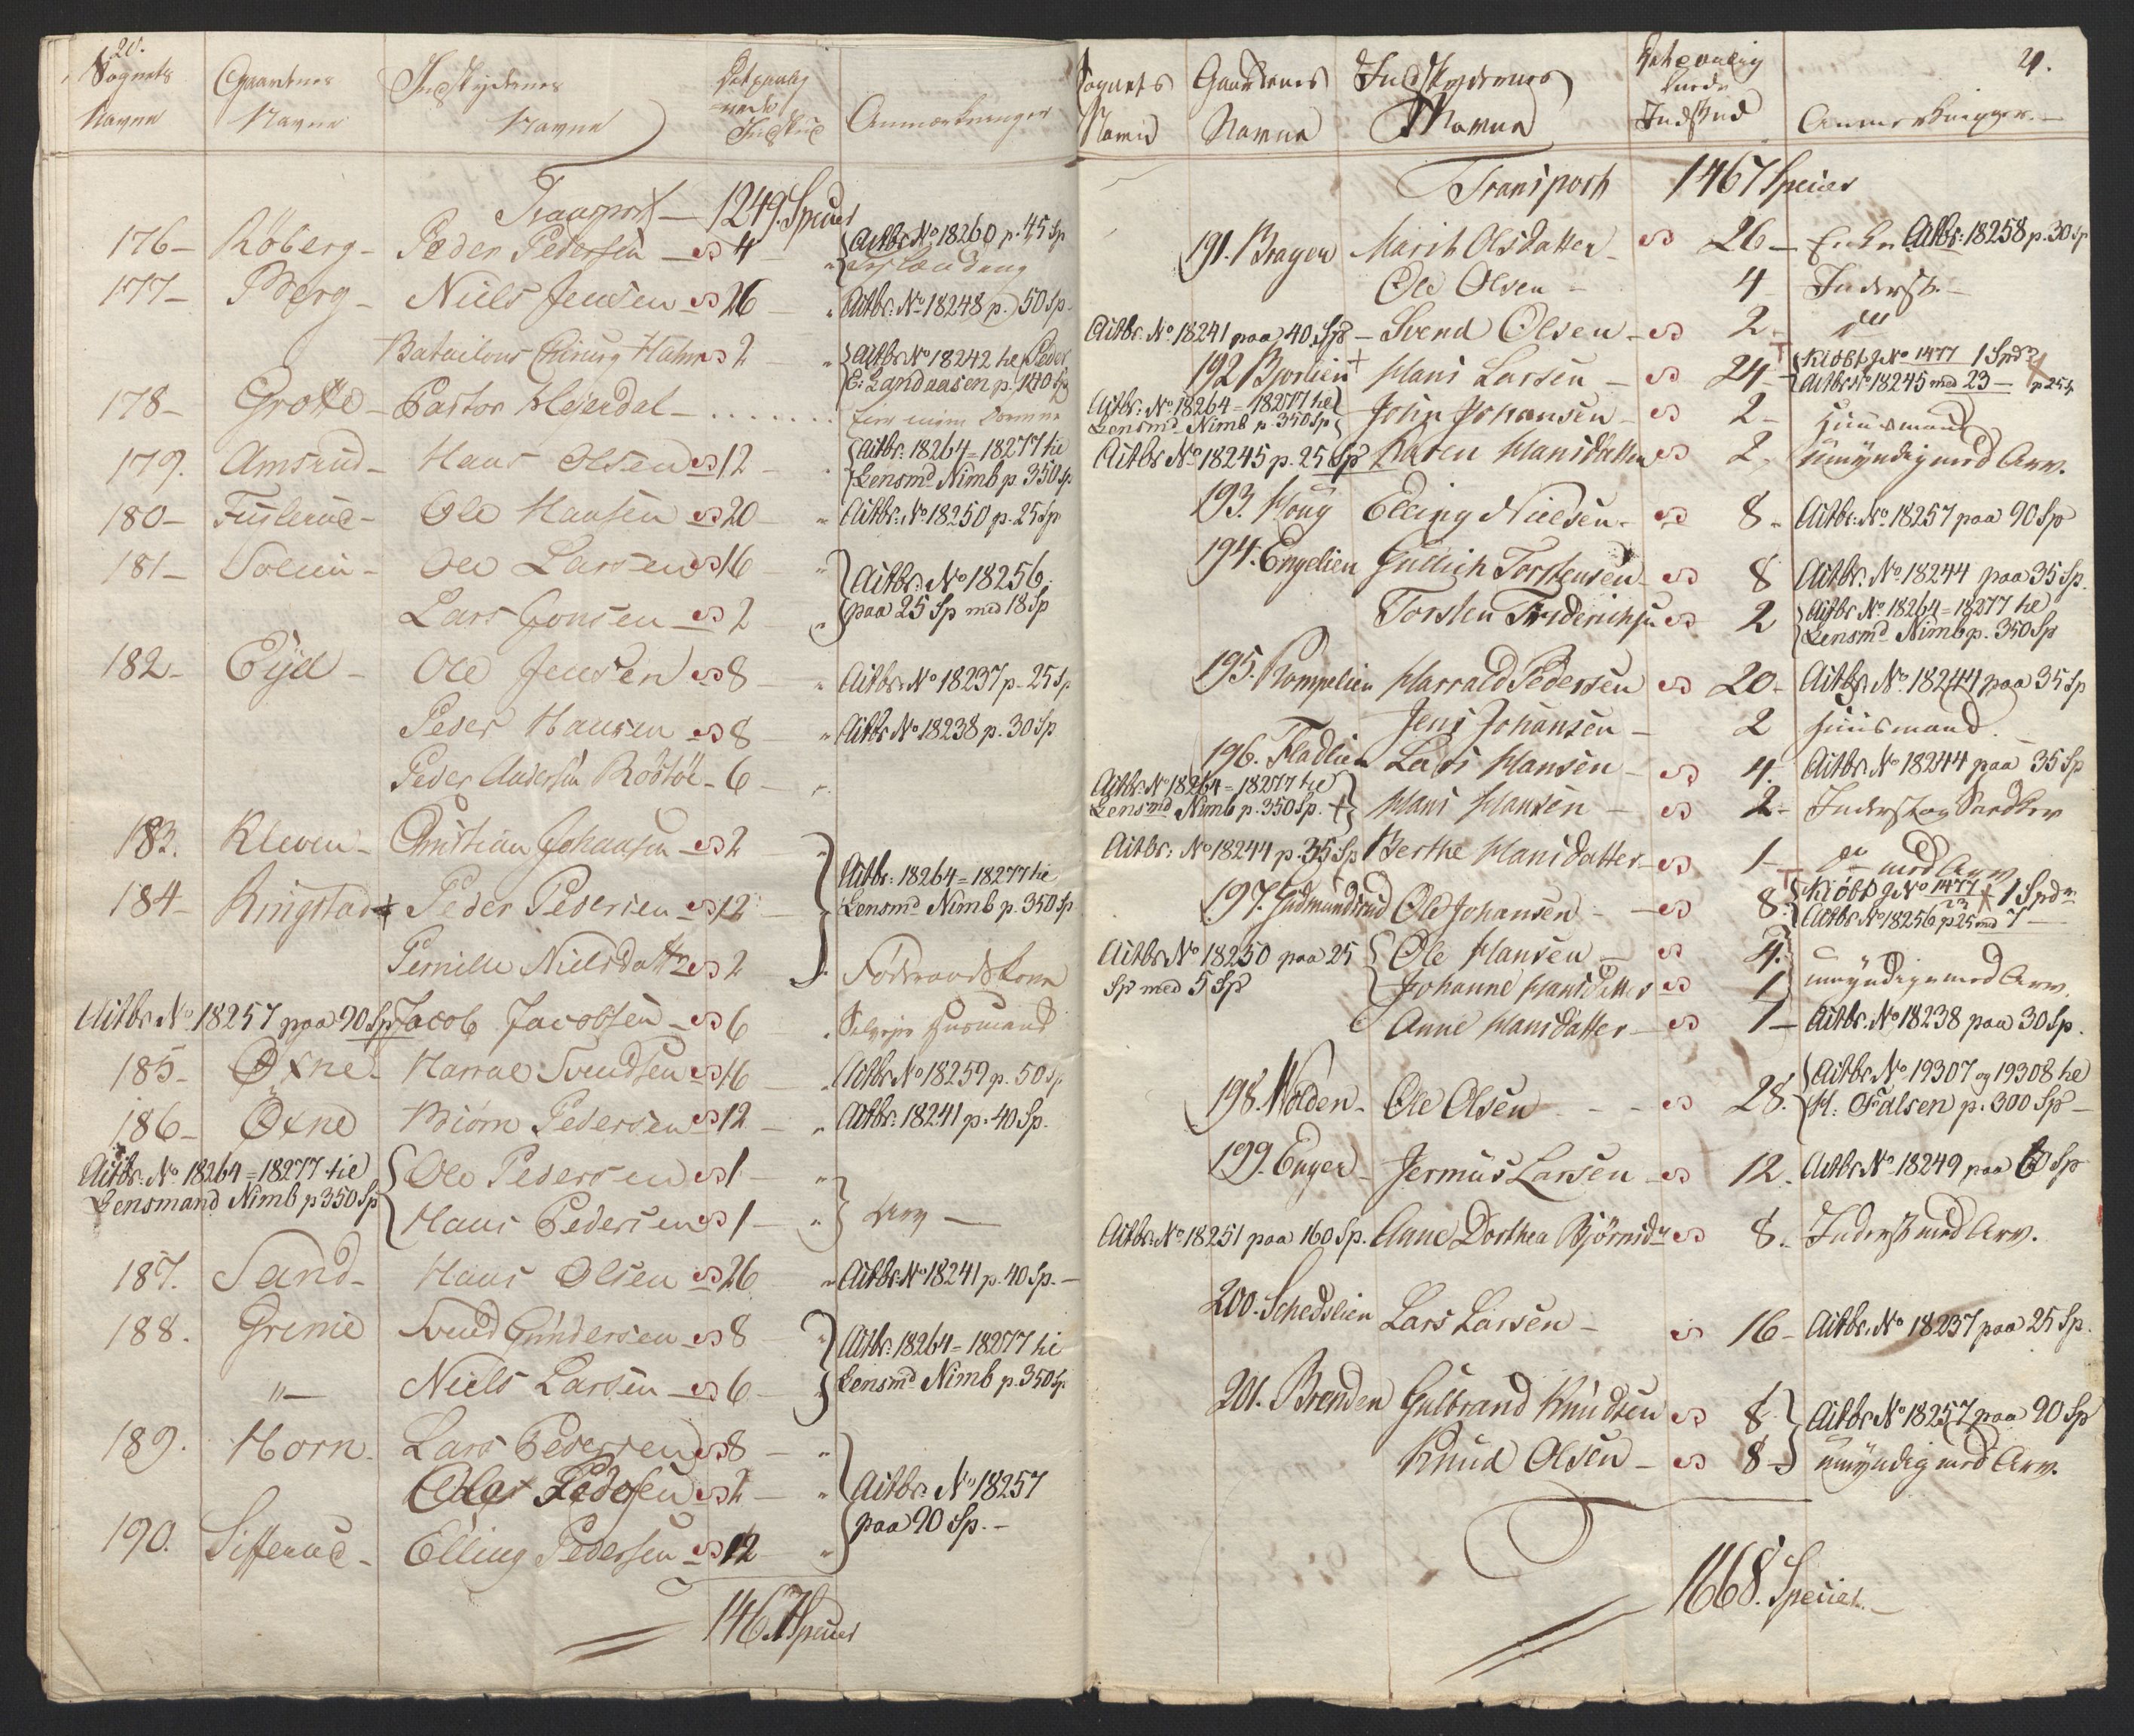 20.
Sognets Navne | Gaardenes Navne | Indskydernes Navne | Indskud | Anmærkninger
Transport — 1249. Specier
176 — Röberg — Peder Pedersen — 4 — Actbr: No 18260 p. 45 Sp
177 — Berg — Niels Jensen — 26 — Actbr: No 18248 p. 50 Sp.
Batailons Chirurg Hahn 2 — Actbr No 18242 til Peder
E: Landaasen p. 140 Sp
178 — Grotte — Pastor Hejerdal — . . . . . . .
179. Amsrud — Hans Olsen 12 — Actbr. 18264 = 18277 til
Lensmd Nimb p. 350 Sp.
180 — Fuslerud — Ole Hansen 20 — Actbr. No 18250 p. 25 Sp
181 — Solum — Ole Larsen 16 — Actbr. No 18256
Lars Jonsen — 2 — paa 25 Sp med 18 Sp
182 — Eijd — Ole Jensen 8 — Actbr. No 18237 p. 25 Sp.
Peder Hansen 8 — Actbr No 18238 p. 30 Sp
Peder Andersen Röstöe — 6 —
183. Kleven — Christian Johansen 2 —
184 — Ringstad + Peder Pedersen 12 — Actbr: 18264 = 18277 til
Lensmd Nimb p. 350 Sp
Pernille Nielsdatter 2 — Föderaadskone
Actbr No 18257 paa 90 Sp Jacob Jacobsen — 6 — Husmand
185 — Øxne — Harral Svendsen 16 — Actbr No 18259 p. 50 Sp
186 — Øxne — Biörn Pedersen 12 — Actbr: 18241 p. 40 Sp.
Actbr: No 18264 = 18277 til
Lensmand Nimb p 350 Sp { Ole Pedersen 1 —
Hans Pedersen 1 — } Arv —
187. Sand — Hans Olsen 26 — Actbr No 18241 p. 40 Sp. —
188. Grenie — Svend Gundersen 8 — Actbr. 18264 = 18277 til
" — Niels Larsen — 6 — Lensmd Nimb p. 350 Sp
189. Horn — Lars Pedersen 8 —
Ole Pedersen 2 — Actbr. No 18257
190. Sifferud — Elling Pedersen 12 — paa 90 Sp. —
1467 Specier
21.
Sognets Navne | Gaardenes Navne | Indskydernes Navne | Indskud | Anmerkninger. —
Transport 1467 Specier
191. Bragen Marith Olsdatter — 26 — Enke Actbr. 18258 p. 30 Sp
Ole Olsen — 4 — Inderst. —
Actbr. No 18241 paa 40 Sp — Svend Olsen — 2 — do
192 Bjorlien + Hans Larsen — 24 — Kiöbt No 1477 1 Spd
Actbr No 18245 med 23 — p 25 Sp
Actbr: No 18264 = 18277 til
Lensmd Nimb p. 350 Sp John Johansen — 2 — Huusmand
Actbr No 18245 p. 25 Sp Karen Hansdatter 2 — umÿndig med Arv.
193. Houg Elling Nielsen — 8 — Actbr: No 18257 paa 90 Sp
194. Engelien Gullich Torstensen — 8 Actbr. No 18244 paa 35 Sp.
Torsten Friderichsn 2 Actbr No 18264 = 18277 til
Lensmd Nimb p. 350 Sp
195. Rompelien Harrald Pedersen 20 — Actbr. No 18244 paa 35 Sp
Jens Johansen — 2 Huusmand.
196. Fladlien Lars Hansen — 4. Actbr. No 18244 paa 35 Sp
Actbr No 18264 = 18277 til
Lensmd Nimb p. 350 Sp. + Hans Hansen — 2 — Inderst og
Actbr: No 18244 p. 35 Sp Berthe Hansdatter — 1 — do med Arv
197. Gudmundsrud Ole Johansen — 8. Kiöbt No 1477 1 Spd
Actbr No 18256 p 25 med 7 —
Actbr No 18250 paa 25
Sp med 5 Sp { Ole Hansen — 4.
Johanne Hansdatter 1 } umyndige med Arv.
Anne Hansdatter — 1 — Actbr. No 18238 paa 30 Sp.
198. Volden — Ole Olsen — 28. Actbr No 19307 og 19308 til
H. Falsen p. 300 Sp —
199. Enger — Jermus Larsen — 12. Actbr No 18249 paa 60 Sp
Actbr. No 18251 paa 160 Sp. Anne Dorthea Bjørnsdr 8. Inderst med Arv.
200. Schedslien Lars Larsen — 16 — Actbr. No 18237 paa 25 Sp.
201. Brenden Gulbrand Knudsen 8 } Actbr No 18257 paa 90 Sp
Knud Olsen — 8 } umyndig med Arv.
1668. Specier. —